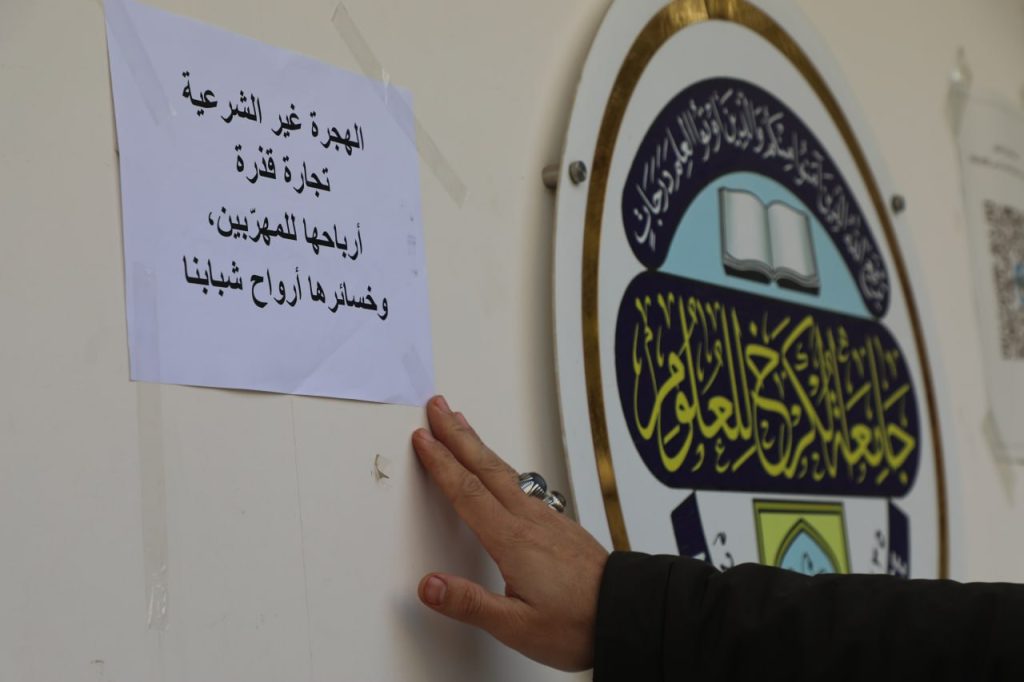 الهجرة غير الشرعية
تجارة قذرة
أرباحها للمهرّبين،
وخسائرها أرواح شبابنا
يرفع الله الذين آمنوا منكم والذين أوتوا العلم درجات
جامعة الكرخ للعلوم